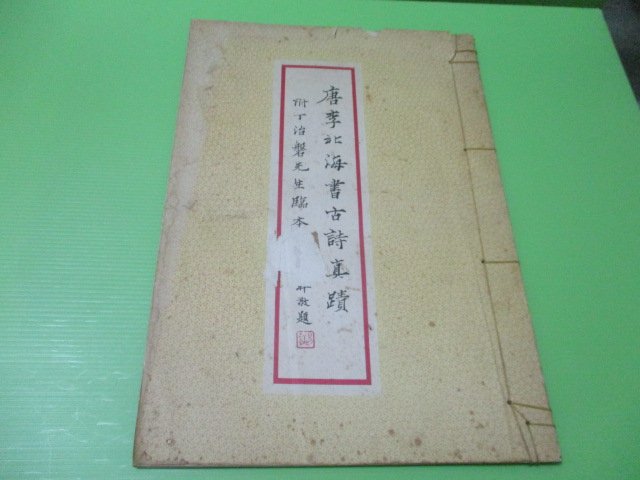 唐李北海書古詩真蹟
附丁治磐先生臨本
敬題